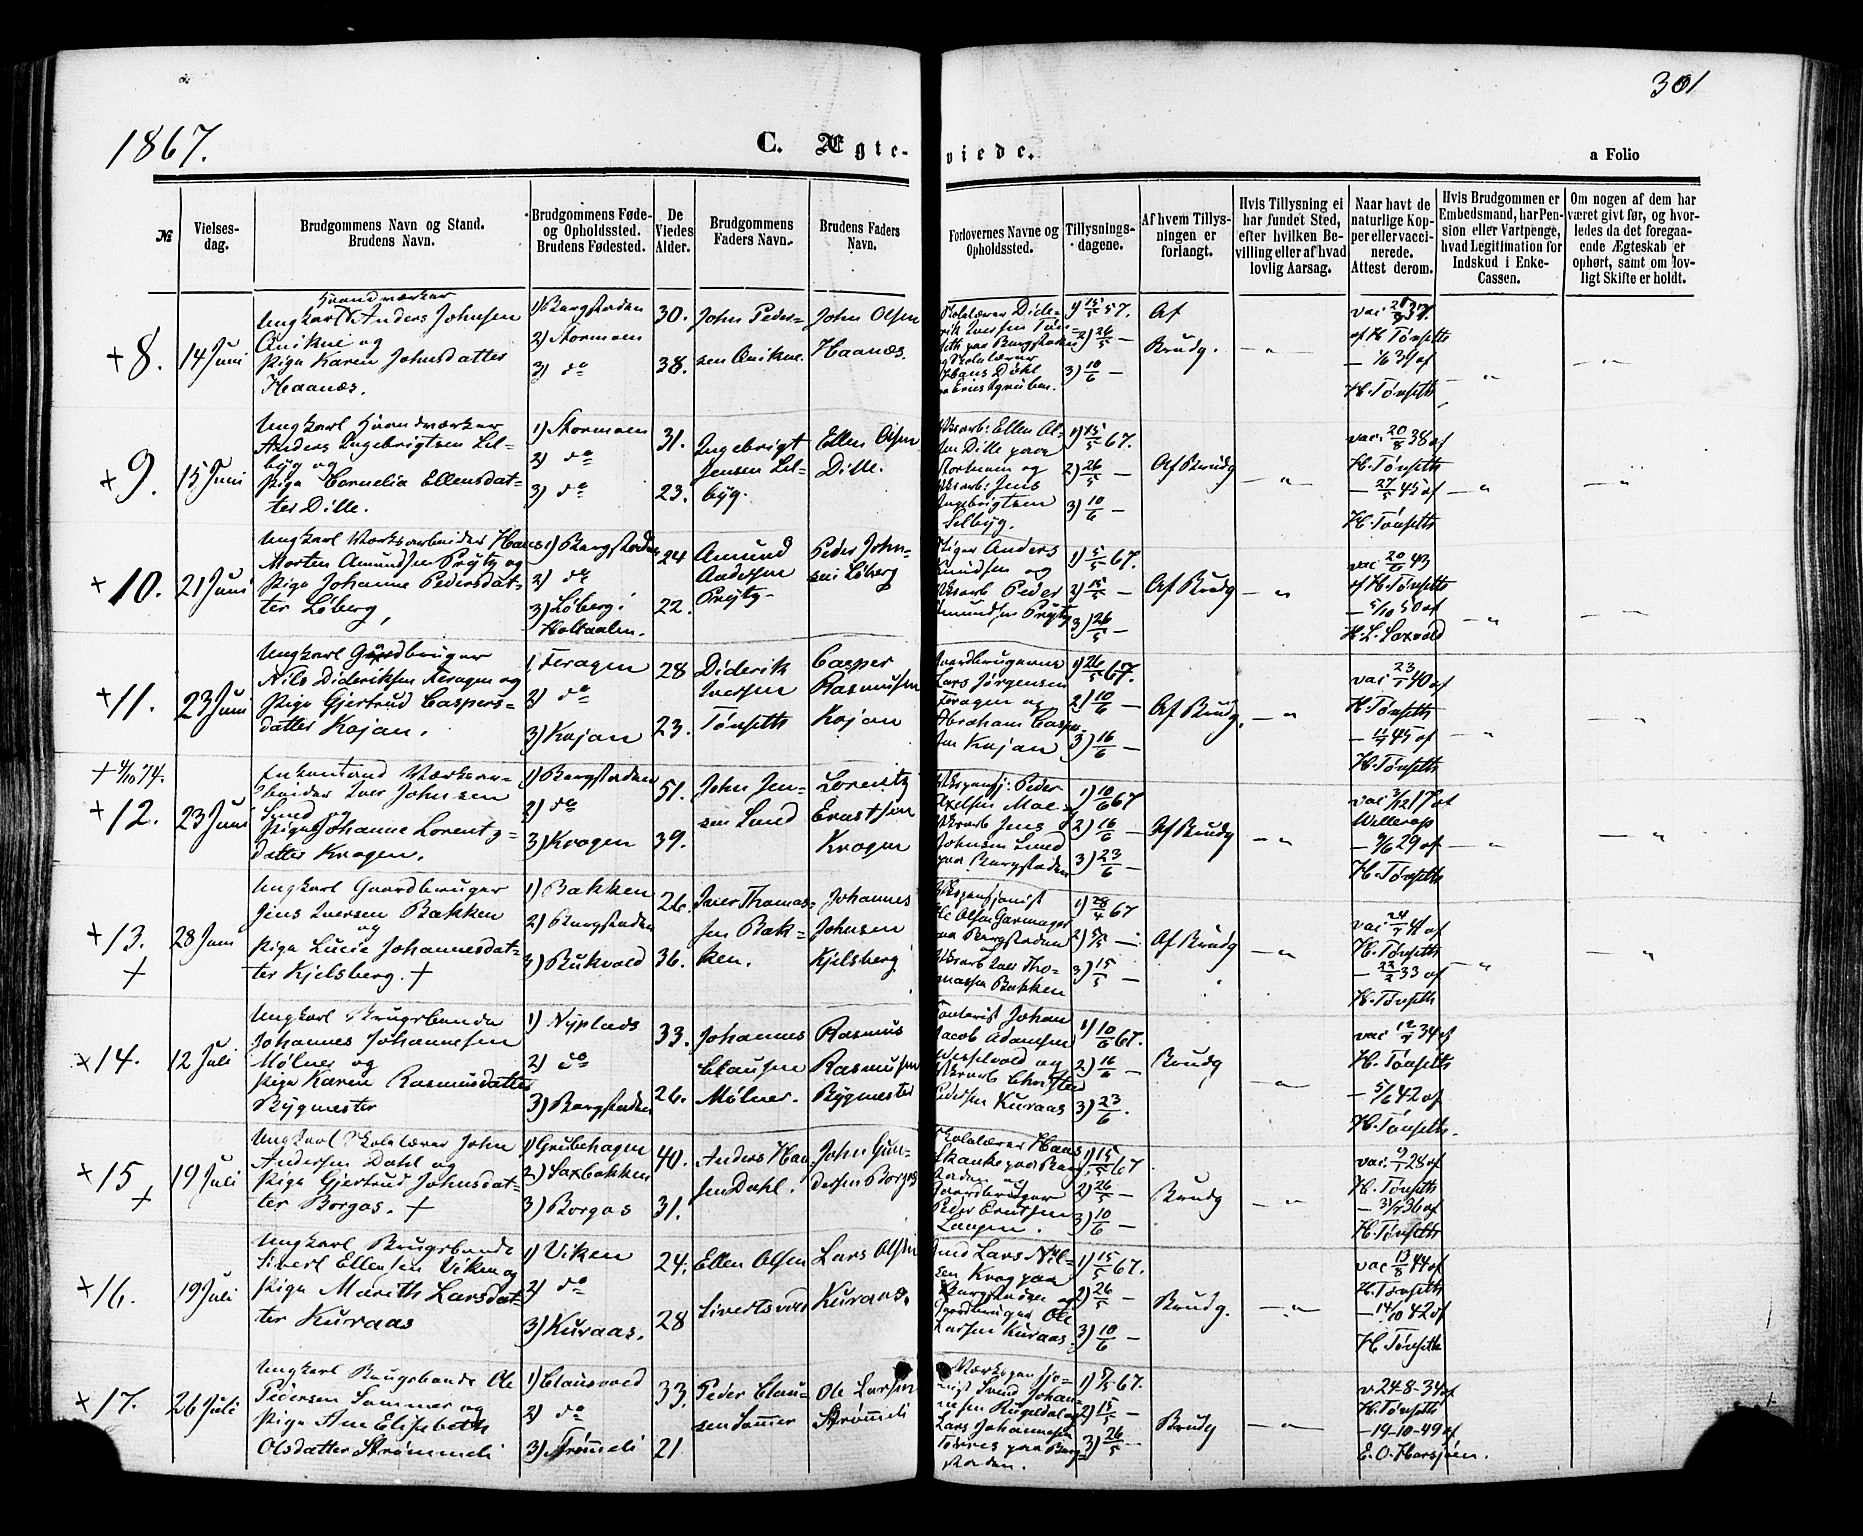 301
1867.
C. Ægteviede.
a Folio
№
Vielsesdag.
Brudgommens Navn og Stand.
Brudens Navn.
Brudgommens Føde- og Opholdssted.
Brudens Fødested.
De Viedes Alder.
Brudgommens Faders Navn.
Brudens Faders Navn.
Forlovernes Navne og Opholdssted.
Tillysningsdagene.
Af hvem Tillysningen er forlangt.
Hvis Tillysning ei har fundet Sted, efter hvilken Bevilling eller af hvad lovlig Aarsag.
Naar havt de naturlige Kopper eller vaccinerede. Attest derom.
Hvis Brudgommen er Embedsmand, har Pension eller Vartpenge, hvad Legitimation for Indskud i Enke-Cassen.
Om nogen af dem har været givt før, og hvorledes da det foregaaende Ægteskab er ophørt, samt om lovligt Skifte er holdt.
+8. 14 Juni
Haandværker
Ungkarl Anders Johnsen
Anikne og
Pige Karen Johnsdatter
Haanæs.
1) Bergstaden
2) Stormoen
3) do
30.
38.
John Pedersen Aniknе
John Olsen Haanæs.
1) 15/5 57.
2) 26/5 —
3) 10/6 —
Af Brudg.
— 6/6 39 af
H. Tønseth
+9. 15 Juni
Ungkarl Haandværker
Anders Ingebrigtsen Selbyg og
Pige Cornelia Ellensdatter Dille.
1) Stormoen
2) do
3) do
31.
23.
Ingebrigt Jensen Selbyg.
Ellen Olsen Dille.
1) 15/5 67.
2) 26/5 —
3) 10/6 —
Af Brudg
vac. 20/8 38 af
H. Tønseth
— 27/5 45 af
H. Tønseth
+10. 21 Juni
Ungkarl Værksarbeider Hans
Morten Amundsen Prytz og
Pige Johanne Pedersdatter Løberg,
1) Bergstaden
2) do
3) Løberg i Holtaalen.
24
22.
Amund Andersen Prytz
Peder Johnsen Løberg
1) 5/5 67.
2) 15/5 —
3) 26/5 —
Af Brudg
vac 20/6 43
af H. Tønseth
— 5/10 50 af
+11. 23 Juni
Ungkarl Gaardbruger
Nils Dideriksen Feragen og
Pige Gjertrud Caspersdatter Kojan.
1) Feragen
2) do
3) Kojan
28
23.
Diderik Iversen Tønseth
Casper Rasmusen Kojan
Gaardbrugerne
Lars Jørgensen
Feragen og
Abraham Caspersen Kojan
1) 26/5 67.
2) 10/6 —
3) 16/6 —
Af Brudg.
vac 23/7 40 af
H. Tønseth
— 11/7 45 af
H. Tønseth
+12. 23 Juni
Enkemand Værksarbeider Iver Johnsen
Lund og
Pige Johanne Lorentzdatter Kragen.
1) Bergstaden
2) do
3) Kragen
51.
39.
John Jensen Lund
Lorentz Ernstsen Kragen
1) 10/6 67
2) 16/6 —
3) 23/6 —
Af Brudg
vac 3/12 17 af
Willerop
— 9/6 29 af
H. Tønseth
+13. + 28 Juni
Ungkarl Gaardbruger
Jens Iversen Bakken
og
Pige Lucie Johannesdatter Kjelsberg. +
1) Bakken
2) Bergstaden
3) Bukvold
26.
36.
Iver Thomassen Bakken.
Johannes Johnsen Kjelsberg
1) 28/4 67
2) 5/5 —
3) 15/5 —
Af Brudg
vac 24/7 41 af
H. Tønseth
— 22/2 33 af
H. Tønseth
+14. 12 Juli
Ungkarl Brugsbonde
Johannes Johannesen
Mølner og
Pige Karen Rasmusdatter
Bygmester
1) Nyplads
2) do
3) Bergstaden
33.
26.
Johannes Clausen Mølner.
Rasmus Rasmusen Bygmester
1) 10/6 67.
2) 16/6 —
3) 23/6.
Brudg
vac 12/7 34 af
H. Tønseth
— 5/6 42 af
H. Tønseth.
+15 + 19 Juli
Ungkarl Skolelærer John
Andersen Dahl og
Pige Gjertrud Johnsdatter Borgos. +
1) Grubehagen
2) Saxbakken
3) Borgos
40.
31.
Anders Hansen Dahl.
John Gundersen Borgos
1) 15/5 67
2) 26/5 —
3) 10/6 —
Brudg
vac. 9/1 28 af
H. Tønseth
— 31/7 36 af
H. Tønseth
+16. 19 Juli
Ungkarl Brugsbonde
Sivert Ellensen Viken og
Pige Marith Larsdatter Kuraas
1) Viken
2) do
3) Kuraas.
24.
28
Ellen Olsen Sivertsvold
Lars Olsen Kuraas.
1) 15/5 67.
2) 26/5 —
3) 10/6 —
Brudg.
vac 13/8 44 af
H. Tønseth
— 14/10 42 af
H. Tønseth
+17. 26 Juli
Ungkarl Brugsbonde Ole
Pedersen Sommer og
Pige Ane Elisabeth
Olsdatter Strømmeli
1) Clausvold
2) do
3) Strømeli
33.
21.
Peder Clausen Somer
Ole Larsen Strømeli
1) 5/5 67.
2) 15/5 —
3) 26/5 —
Brudg
v 24-8-34 af
H. Tønseth
— 19-10-49 af
E. O. Harsjøen.